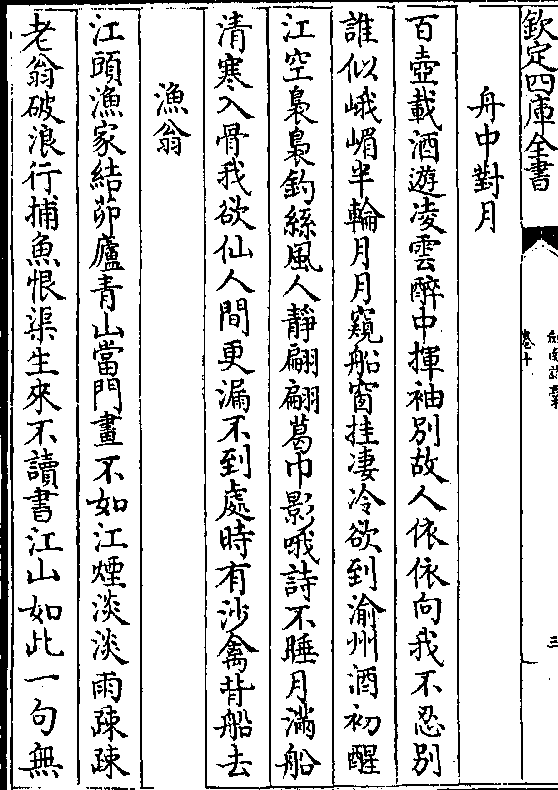 欽定四庫全書
卷十
三
舟中對月
百壺載酒遊凌雲醉中揮袖别故人依依向我不忍别
誰似峨嵋半輪月月窺船窗挂凄冷欲到渝州酒初醒
江空裊裊釣絲風人靜翩翩葛巾影哦詩不睡月滿船
清寒入骨我欲仙人間更漏不到處時有沙禽背船去
漁翁
江頭漁家結茆廬青山當門畫不如江煙淡淡雨疎疎
老翁破浪行捕魚恨渠生來不讀書江山如此一句無